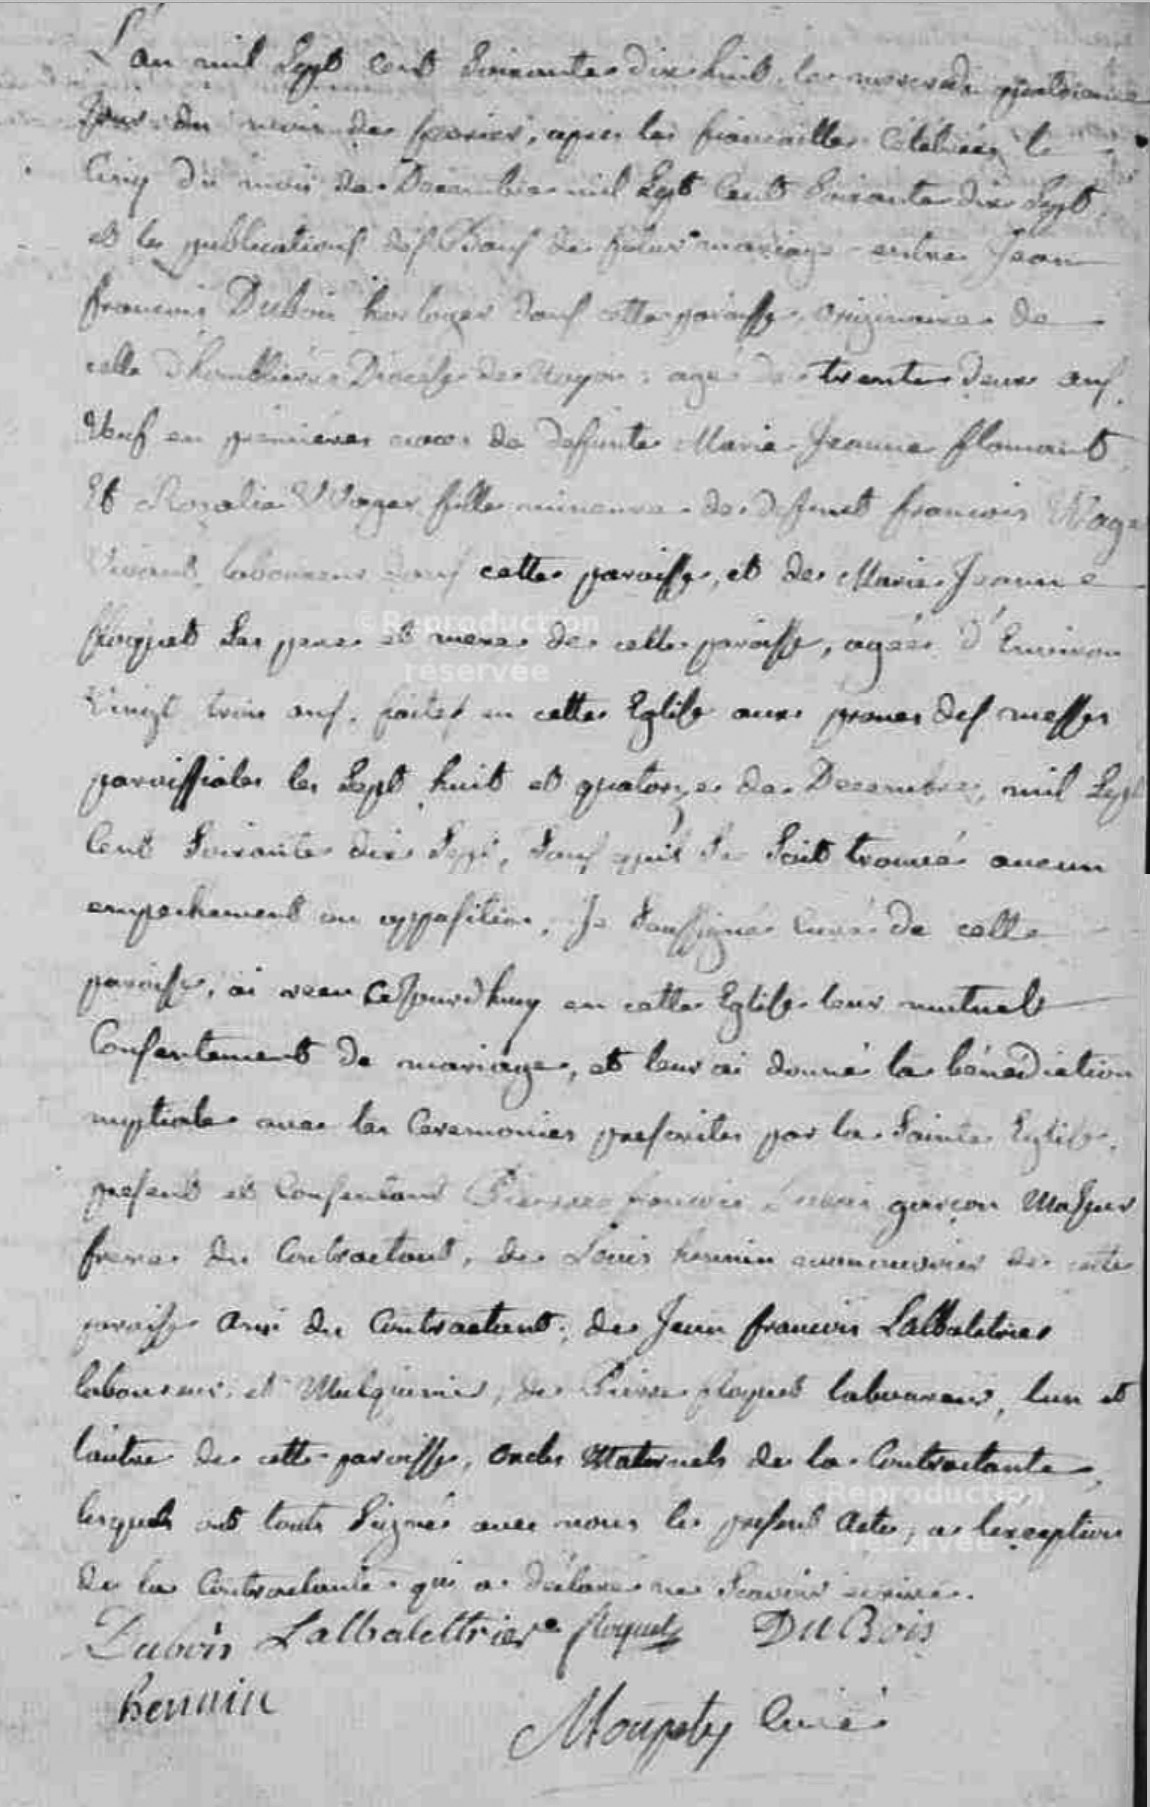 L'an mil Sept Cent Soixante dix huit le mercredi quatrieme
jour du mois de fevrier, apres les fiancailles Célébrées le
Cinq du mois de Decembre mil Sept Cent Soixante dix Sept
et les publications des Bans de futur mariage entre Jean
francois Dubois horloger dans cette paroisse, originaire de
celle d'hombliere Diocése de Noyon, agé de trente deux ans,
Veuf en premieres noces de deffunte Marie Jeanne flamant
Et Rozalie Wager fille mineure de defunct francois Wager
Vivant laboureur dans cette paroisse, et de Marie Jeanne
floquet Ses pere et mere de cette paroisse, agée d'Environ
Vingt trois ans, faites en cette Eglise aux prones des messes
paroissiales les Sept huit et quatorze de Decembre, mil Sept
Cent Soixante dix Sept, Sans qu'il Se Soit trouvé aucun
empechement ou opposition, Je Soussigné Curé de cette
paroisse, ai recu Cejourd'huy en cette Eglise leur mutuel
Consentement de mariage, et leur ai donné la bénédiction
nuptiale avec les Ceremonies prescrites par la Sainte Eglise,
present et Consentant Pierre francois Dubois garçon Majeur
frere du Contractant, de Louis hennin manouvrier de cette
paroisse ami du Contractant, de Jean francois Lalbaletrier
laboureur et Mulquinier, de Pierre floquet laboureur, lun et
lautre de cette paroisse, oncles Maternels de la Contractante,
lesquels ont touts Signé avec nous le present Acte, a lexception
de la Contractante qui a déclaré ne Scavoir écrire.
Dubois Lalbalettrier floquet DuBois
hennin
Moupety Curé
©Reproduction
réservée
©Reproduction
réservée